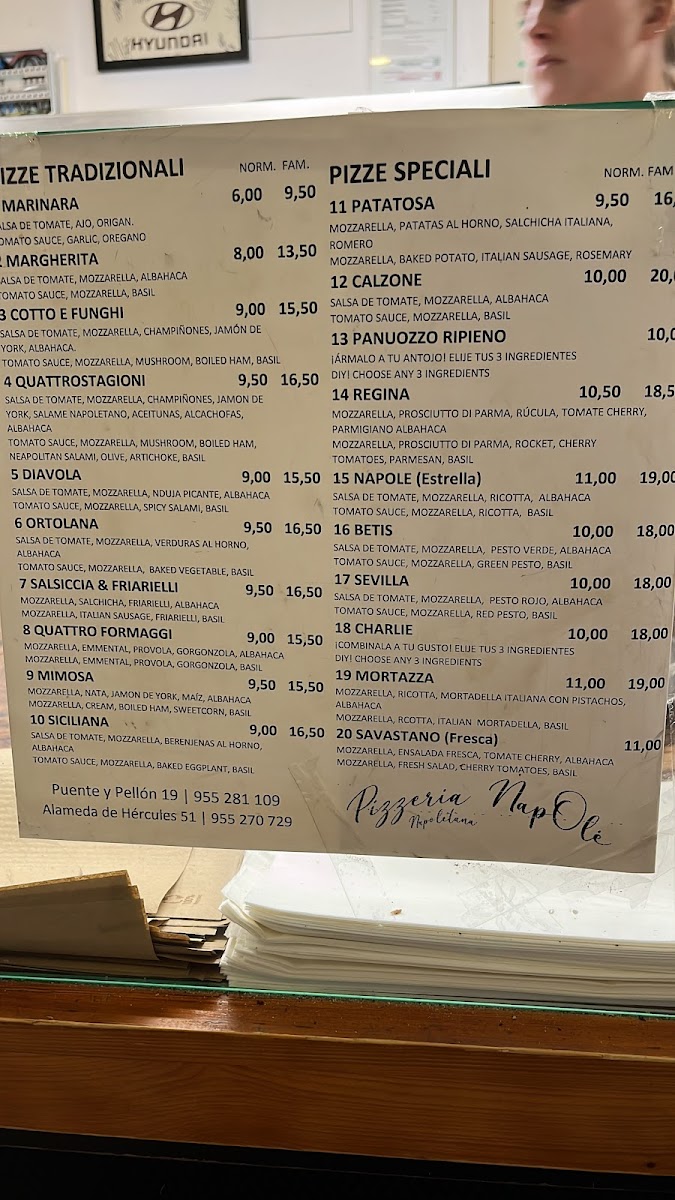 HYUNDAI
IZZE TRADIZIONALI NORM. FAM.
MARINARA 6,00 9,50
ALSA DE TOMATE, AJO, ORIGAN.
OMATO SAUCE, GARLIC, OREGANO
MARGHERITA 8,00 13,50
ALSA DE TOMATE, MOZZARELLA, ALBAHACA
TOMATO SAUCE, MOZZARELLA, BASIL
3 COTTO E FUNGHI 9,00 15,50
SALSA DE TOMATE, MOZZARELLA, CHAMPIÑONES, JAMÓN DE
YORK, ALBAHACA.
TOMATO SAUCE, MOZZARELLA, MUSHROOM, BOILED HAM, BASIL
4 QUATTROSTAGIONI 9,50 16,50
SALSA DE TOMATE, MOZZARELLA, CHAMPIÑONES, JAMON DE
YORK, SALAME NAPOLETANO, ACEITUNAS, ALCACHOFAS,
ALBAHACA
TOMATO SAUCE, MOZZARELLA, MUSHROOM, BOILED HAM,
NEAPOLITAN SALAMI, OLIVE, ARTICHOKE, BASIL
5 DIAVOLA 9,00 15,50
SALSA DE TOMATE, MOZZARELLA, NDUJA PICANTE, ALBAHACA
TOMATO SAUCE, MOZZARELLA, SPICY SALAMI, BASIL
6 ORTOLANA 9,50 16,50
SALSA DE TOMATE, MOZZARELLA, VERDURAS AL HORNO,
ALBAHACA
TOMATO SAUCE, MOZZARELLA, BAKED VEGETABLE, BASIL
7 SALSICCIA & FRIARIELLI 9,50 16,50
MOZZARELLA, SALCHICHA, FRIARIELLI, ALBAHACA
MOZZARELLA, ITALIAN SAUSAGE, FRIARIELLI, BASIL
8 QUATTRO FORMAGGI 9,00 15,50
MOZZARELLA, EMMENTAL, PROVOLA, GORGONZOLA, ALBAHACA
MOZZARELLA, EMMENTAL, PROVOLA, GORGONZOLA, BASIL
9 MIMOSA 9,50 15,50
MOZZARELLA, NATA, JAMON DE YORK, MAÍZ, ALBAHACA
MOZZARELLA, CREAM, BOILED HAM, SWEETCORN, BASIL
10 SICILIANA 9,00 16,50
SALSA DE TOMATE, MOZZARELLA, BERENJENAS AL HORNO,
ALBAHACA
TOMATO SAUCE, MOZZARELLA, BAKED EGGPLANT, BASIL
Puente y Pellón 19 | 955 281 109
Alameda de Hércules 51 | 955 270 729
PIZZE SPECIALI NORM. FAM
11 PATATOSA 9,50 16,
MOZZARELLA, PATATAS AL HORNO, SALCHICHA ITALIANA,
ROMERO
MOZZARELLA, BAKED POTATO, ITALIAN SAUSAGE, ROSEMARY
12 CALZONE 10,00 20,0
SALSA DE TOMATE, MOZZARELLA, ALBAHACA
TOMATO SAUCE, MOZZARELLA, BASIL
13 PANUOZZO RIPIENO 10,0
¡ÁRMALO A TU ANTOJO! ELIJE TUS 3 INGREDIENTES
DIY! CHOOSE ANY 3 INGREDIENTS
14 REGINA 10,50 18,5
MOZZARELLA, PROSCIUTTO DI PARMA, RÚCULA, TOMATE CHERRY,
PARMIGIANO ALBAHACA
MOZZARELLA, PROSCIUTTO DI PARMA, ROCKET, CHERRY
TOMATOES, PARMESAN, BASIL
15 NAPOLE (Estrella) 11,00 19,00
SALSA DE TOMATE, MOZZARELLA, RICOTTA, ALBAHACA
TOMATO SAUCE, MOZZARELLA, RICOTTA, BASIL
16 BETIS 10,00 18,00
SALSA DE TOMATE, MOZZARELLA, PESTO VERDE, ALBAHACA
TOMATO SAUCE, MOZZARELLA, GREEN PESTO, BASIL
17 SEVILLA 10,00 18,00
SALSA DE TOMATE, MOZZARELLA, PESTO ROJO, ALBAHACA
TOMATO SAUCE, MOZZARELLA, RED PESTO, BASIL
18 CHARLIE 10,00 18,00
¡COMBINALA A TU GUSTO! ELIJE TUS 3 INGREDIENTES
DIY! CHOOSE ANY 3 INGREDIENTS
19 MORTAZZA 11,00 19,00
MOZZARELLA, RICOTTA, MORTADELLA ITALIANA CON PISTACHOS,
ALBAHACA
MOZZARELLA, RCOTTA, ITALIAN MORTADELLA, BASIL
20 SAVASTANO (Fresca) 11,00
MOZZARELLA, ENSALADA FRESCA, TOMATE CHERRY, ALBAHACA
MOZZARELLA, FRESH SALAD, CHERRY TOMATOES, BASIL
Pizzeria NapOlé
Napoletana